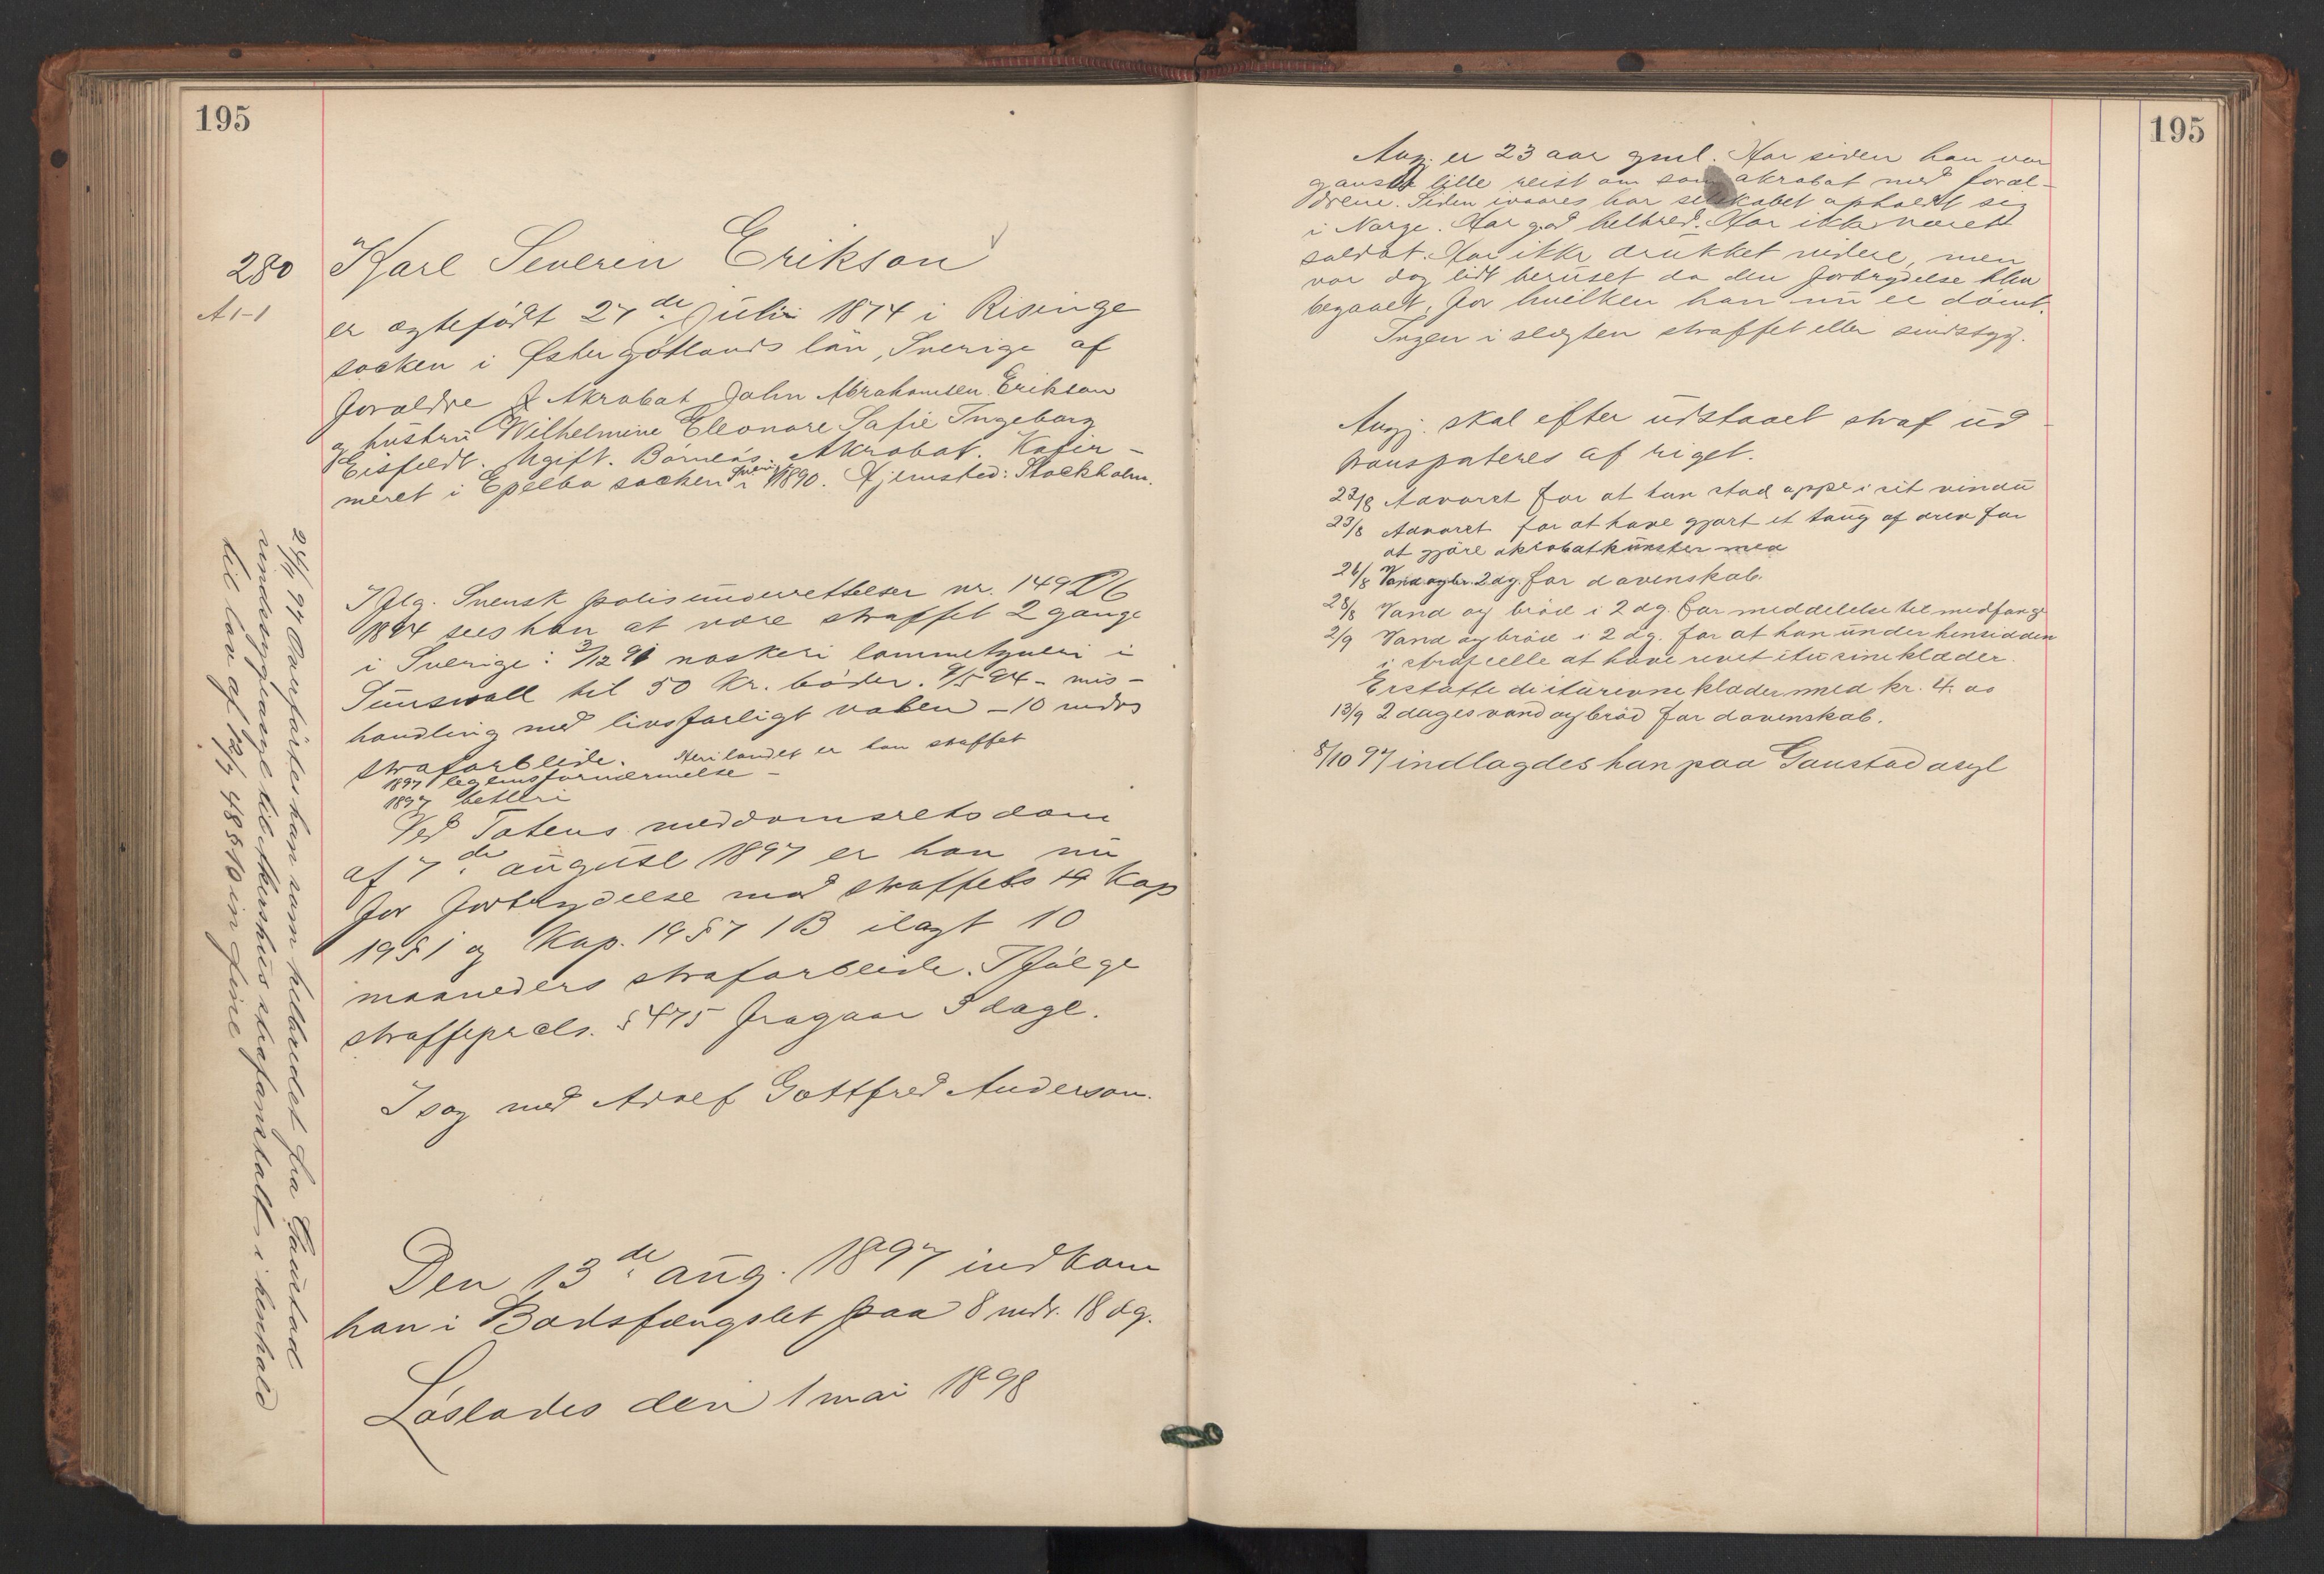 195
280
A 1-1
Karl Severin Erikson
er ægtefødt 27de Juli 1874 i Risinge
socken i Østergötlands län, Sverige af
forældre Akrobat John Abrahamsen Erikson
og hustru Wilhelmine Eleonore Sofie Ingeborg
Eisfeldt. Ugift. Barnløs. Akrobat. Kofir-
meret i Epelbo socken i 1890. Hjemsted: Stockholm.
Iflg. Svensk polisunderrettelser nr. 149
1894 sees han at være straffet 2 gange
i Sverige: 3/12 91 naskeri lommetyveri i
Sunswall til 50 kr. bøder. 9/5 94 - mis-
handling med livsfarligt vaben - 10 mdrs
strafarbeide. Heri landet er han straffet
1897 legemsfornærmelse -
1897 betleri
Ved Totens meddomsretsdom
af 7de august 1897 er han nu
for forbrydelse mod straffels 19 Kap
19 § 1 og Kap. 19 § 7 1B ilagt 10
maaneders strafarbeide. Ifølge
straffeprcls. § 475 fragaar 3 dage.
I sag med Adolf Gottfred Anderson.
Den 13de aug. 1897 indkom
han i Bodsfængslet paa 8 mdr. 18 dg.
Løslodes den 1 mai 1898
24/11 97 Overførtes han som helbredet fra Gaustad
sindssygeasyl til Akershus strafanstalt i henhold
til lov af 12/7 48 § 10 in fine
195
Angj. er 23 aar gml. Har siden han var
ganske lille reist om som akrobat med foræl-
drene. Siden ivaares har selskabet opholdt sig
i Norge. Har god helbred. Har ikke været
soldat. Har ikke drukket videre, men
var dog lidt beruset da den forbrydelse blev
begaaet, for hvilken han nu er dømt.
Ingen i slægten straffet eller sindssyg.
Angj. skal efter udstaaet straf ud
transporteres af riget.
22/8 Advaret for at han stod oppe i sit vindu
23/8 Advaret for at have gjort et taug af drev for
at gjøre akrobatkunster med
26/8 Vand og br. 2 dg. for dovenskab.
28/8 Vand og brød i 2 dg. for meddelelse til medfange
2/9 Vand og brød i 2 dg. for at han under hensidden
i strafcelle at have revet itu sine klæder.
Erstatte de iturevne klæder med kr. 4.00
13/9 2 dages vand og brød for dovenskab.
8/10 97 indlagdes han paa Gaustad asyl